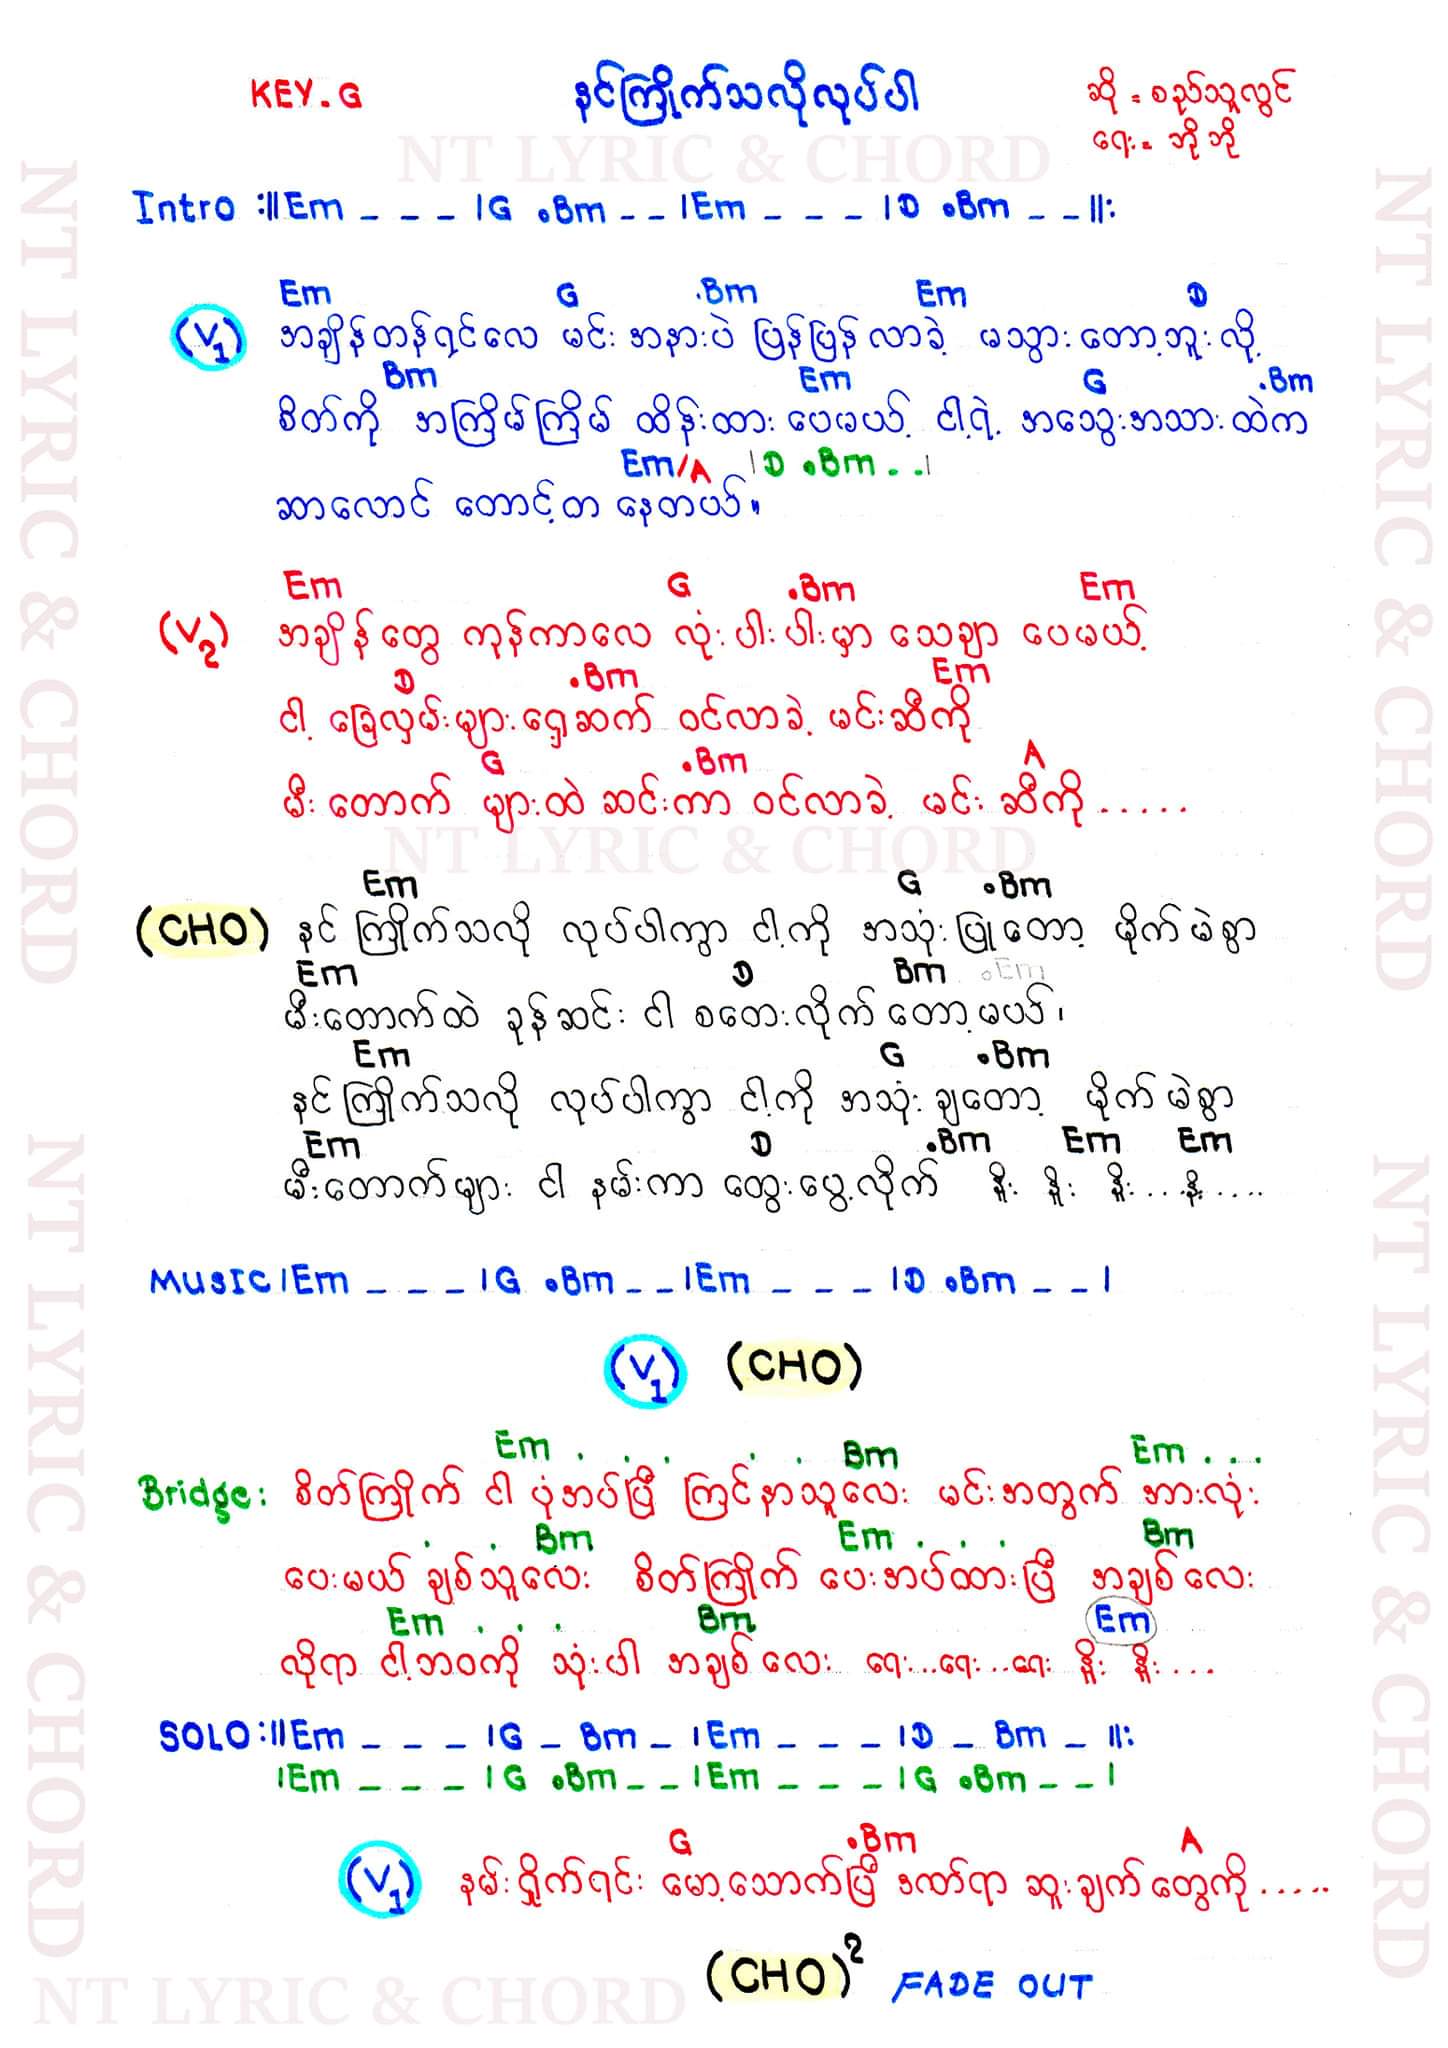 KEY. G
နင်ကြိုက်သလိုလုပ်ပါ
ဆို = စည်သူလွင်
ရေး = ဘိုဘို
NT LYRIC & CHORD
Intro :||Em _ _ _ |G .Bm _ _ |Em _ _ _ |D .Bm _ _ ||:
Em G .Bm Em D
(V1) အချိန်တန်ရင်လေ မင်း အနားပဲ ပြန်ပြန်လာခဲ့ မသွားတော့ဘူးလို့
Bm Em G .Bm
စိတ်ကို အကြိမ်ကြိမ် ထိန်းထား ပေမယ့် ငါ့ရဲ့ အသွေးအသားထဲက
Em/A |D .Bm . . |
ဆာလောင် တောင့်တ နေတယ်။
Em G .Bm Em
(V2) အချိန်တွေ ကုန်ကာလေ လုံးပါးပါးမှာ သေချာ ပေမယ့်
D .Bm Em
ငါ့ ခြေလှမ်းများရှေ့ဆက် ဝင်လာခဲ့ မင်းဆီကို
G .Bm A
မီးတောက် များထဲ ဆင်းကာ ဝင်လာခဲ့ မင်း ဆီကို . . . . .
NT LYRIC & CHORD
Em G .Bm
(CHO) နင် ကြိုက်သလို လုပ်ပါကွာ ငါ့ကို အသုံးပြုတော့ မိုက်မဲစွာ
Em D Bm .Em
မီးတောက်ထဲ ခုန်ဆင်း ငါ စတေးလိုက် တော့မယ်၊
Em G .Bm
နင်ကြိုက်သလို လုပ်ပါကွာ ငါ့ကို အသုံးချတော့ မိုက်မဲစွာ
Em D .Bm Em Em
မီးတောက်များ ငါ နမ်းကာ တွေးပွေ့လိုက် နိူး နိူး နိူး . . . နိူး . . . .
MUSIC |Em _ _ _ |G .Bm _ _ |Em _ _ _ |D .Bm _ _ |
(V1) (CHO)
Em . . . . . Bm Em . . .
Bridge: စိတ်ကြိုက် ငါ ပုံအပ်ပြီ ကြင်နာသူလေး မင်းအတွက် အားလုံး
. . Bm Em . . . Bm
ပေးမယ် ချစ်သူလေး စိတ်ကြိုက် ပေးအပ်ထားပြီ အချစ်လေး
Em . . . Bm Em
လိုရာ ငါ့ဘဝကို သုံးပါ အချစ်လေး ရေး...ရေး...ရေး နိူး နိူး . . .
SOLO :||Em _ _ _ |G _ Bm _ |Em _ _ _ |D _ Bm _ ||:
|Em _ _ _ |G .Bm _ _ |Em _ _ _ |G .Bm _ _ |
G .Bm A
(V1) နမ်းရှိုက်ရင်း မော့သောက်ပြီ ဒဏ်ရာ ဆူးချက်တွေကို . . . . .
(CHO)2 FADE OUT
NT LYRIC & CHORD
NT LYRIC & CHORD
NT LYRIC & CHORD
NT LYRIC & CHORD
NT LYRIC & CHORD